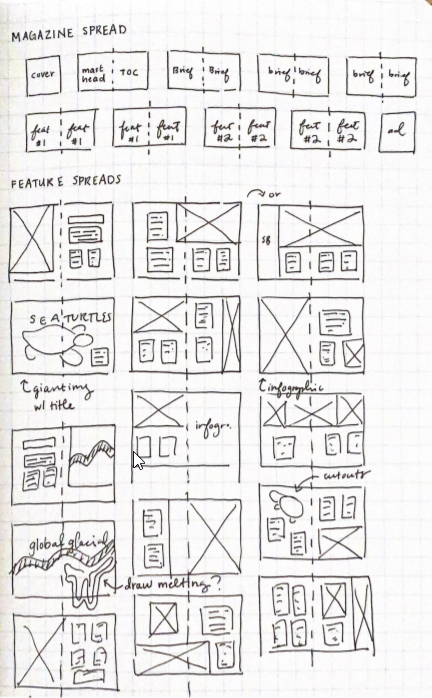 MAGAZINE SPREAD
cover
mast head
TOC
Brief
Brief
brief
brief
brief
brief
feat #1
feat #1
feat #1
feat #1
feat #2
feat #2
feat #2
feat #2
ad
FEATURE SPREADS
or
SB
SEA TURTLES
giant img
w/ title
infographic
infogr.
cutouts
global glacial
draw melting?